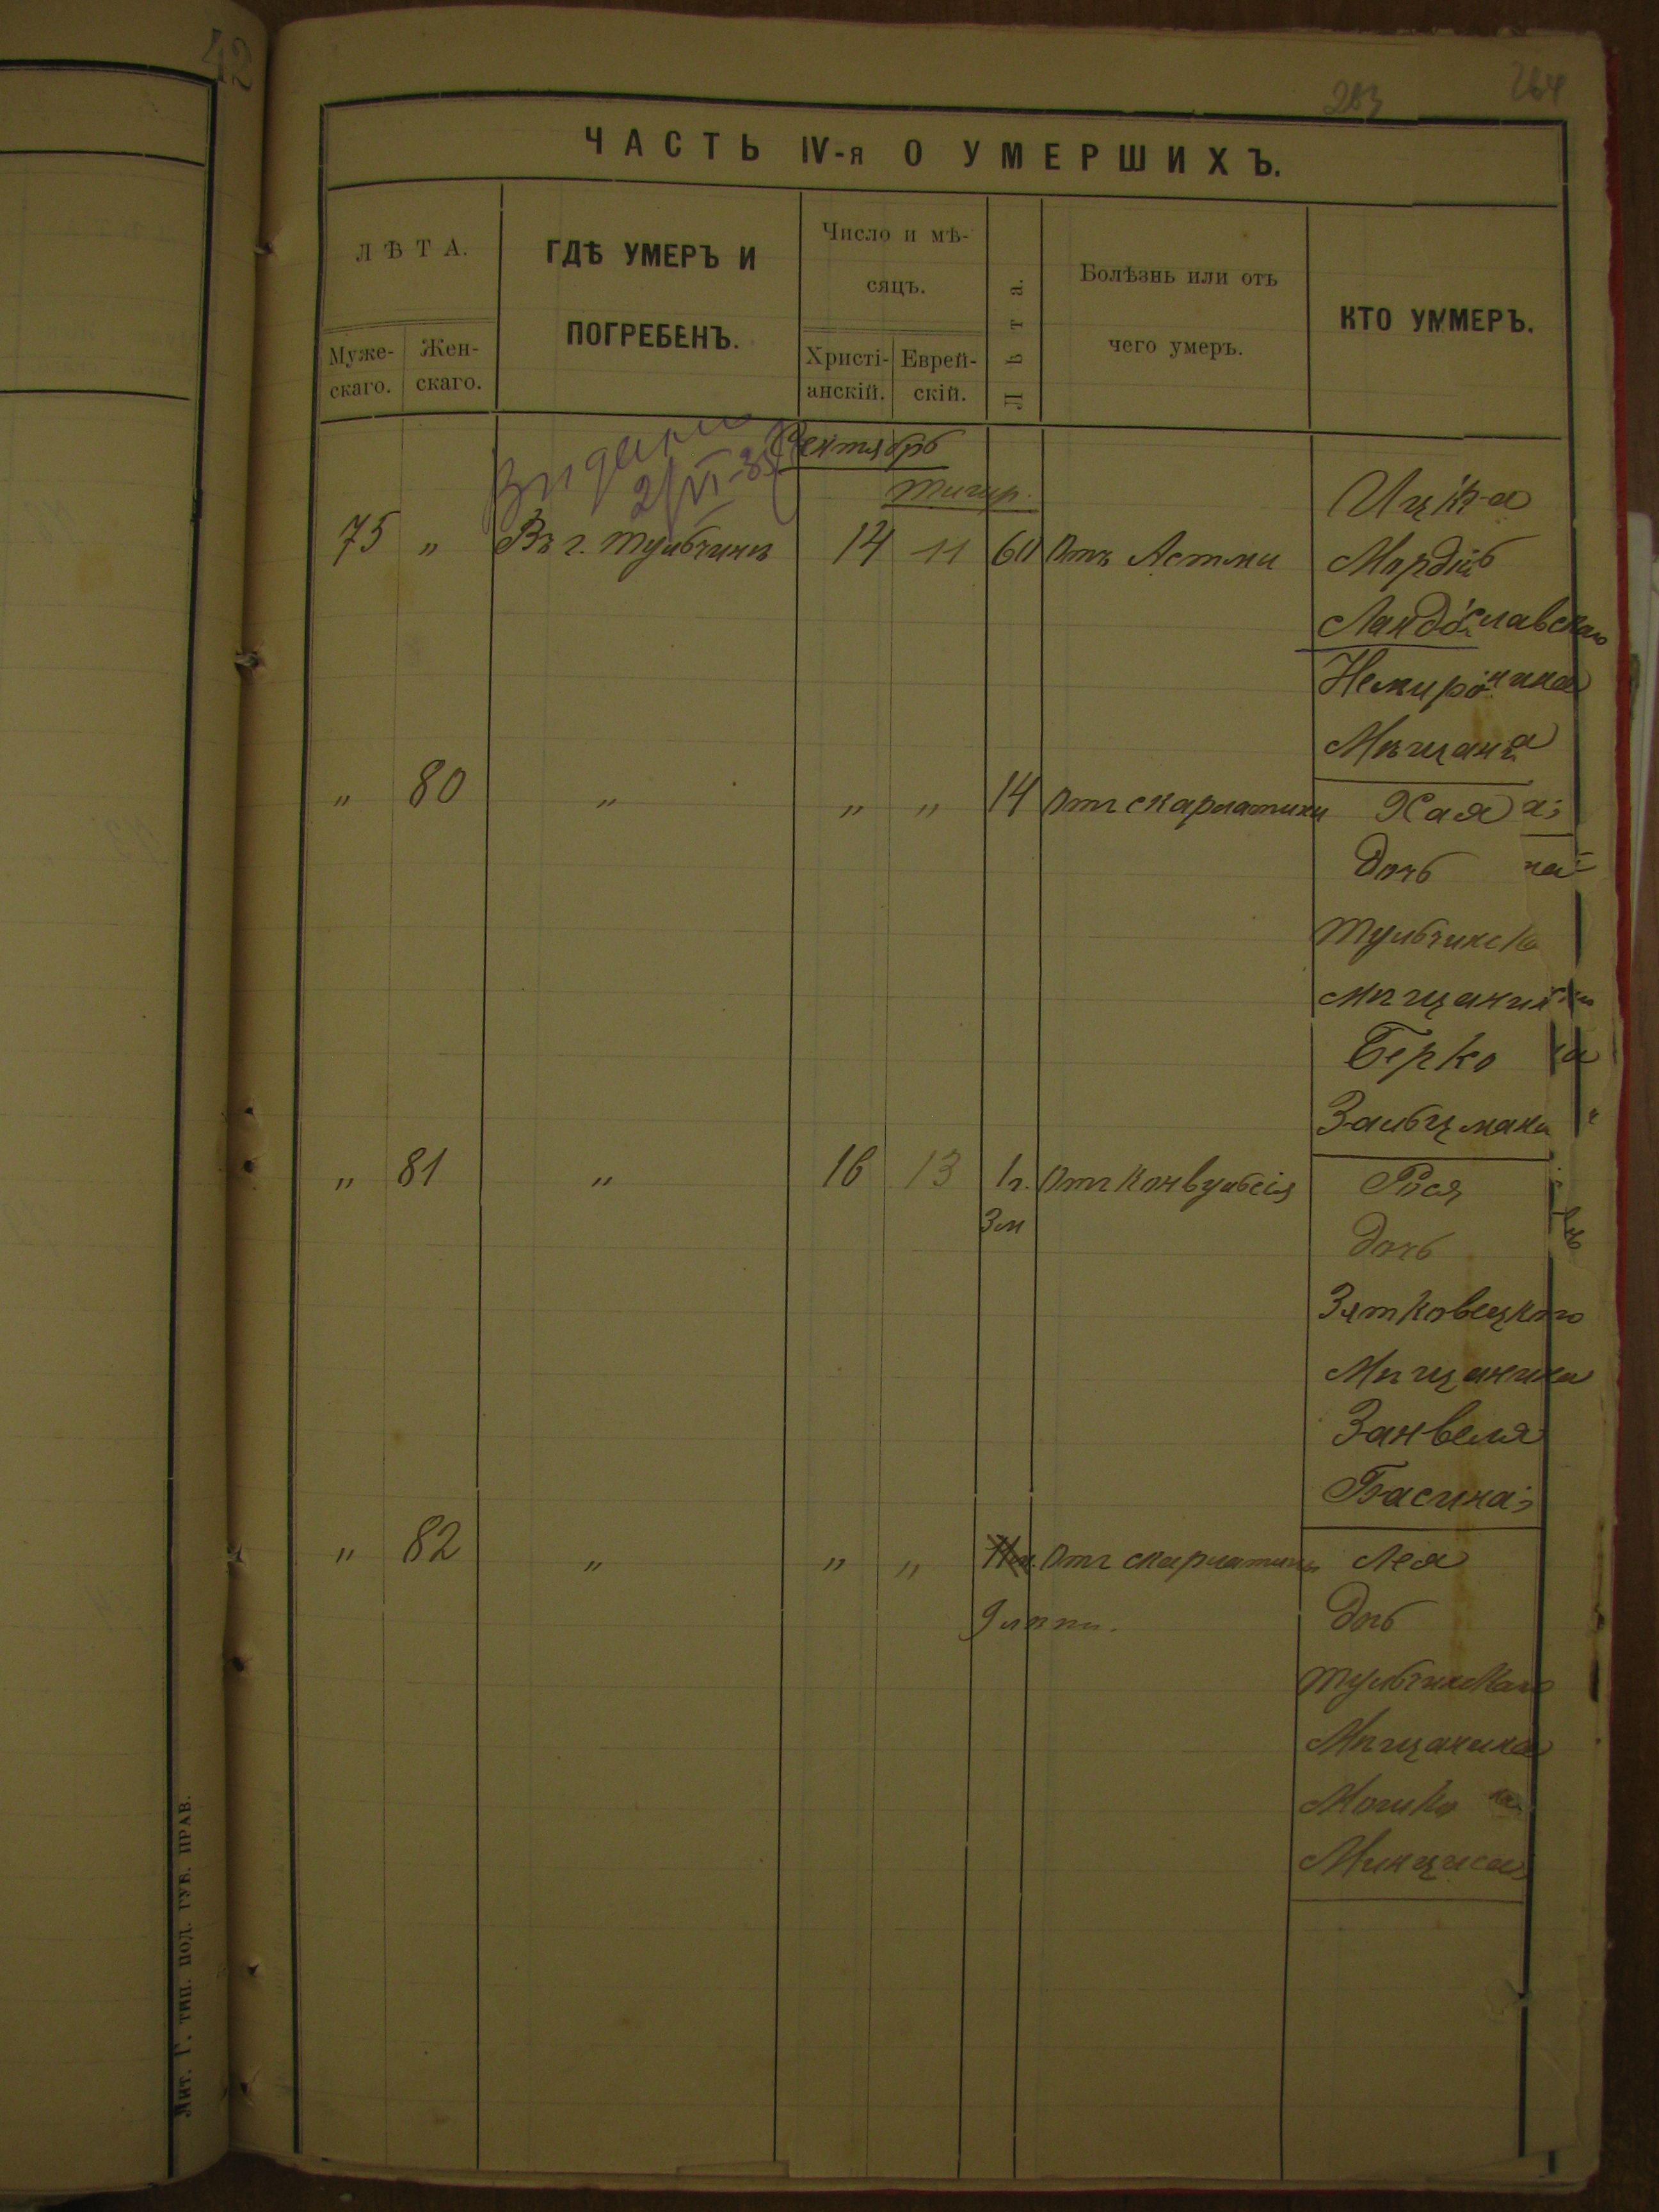 42
203
264
ЧАСТЬ IV-я О УМЕРШИХЪ.
ЛѢТА.
Муже-
скаго.
Жен-
скаго.
ГДѢ УМЕРЪ И
ПОГРЕБЕНЪ.
Число и мѣ-
сяцъ.
Христі-
анскій.
Еврей-
скій.
Лѣта.
Болѣзнь или отъ
чего умеръ.
КТО УММЕРЪ.
2/VI-35
Сентябрь
Тишр.
75 " Въ г. Тульчинѣ 14 11 60 Отъ Астмы
Ицка
Немиров
Мѣщан
" 80 " " " 14 Отъ скарлатины Хая
дочь
Тульчинск
Мѣщанин
Берко
Зальцмана
" 81 " 16 13 1 г. Отъ Конвульсія Рося
3 м
дочь
Зятковецкого
Мѣщанина
Занвеля
Басина
" 82 " " " Отъ скарлатины Лея
9 лѣтъ.
дочь
Тульчинскаго
Мѣщанина
Мошко
Минциса
Лит. Г. тип. Под. Губ. Прав.